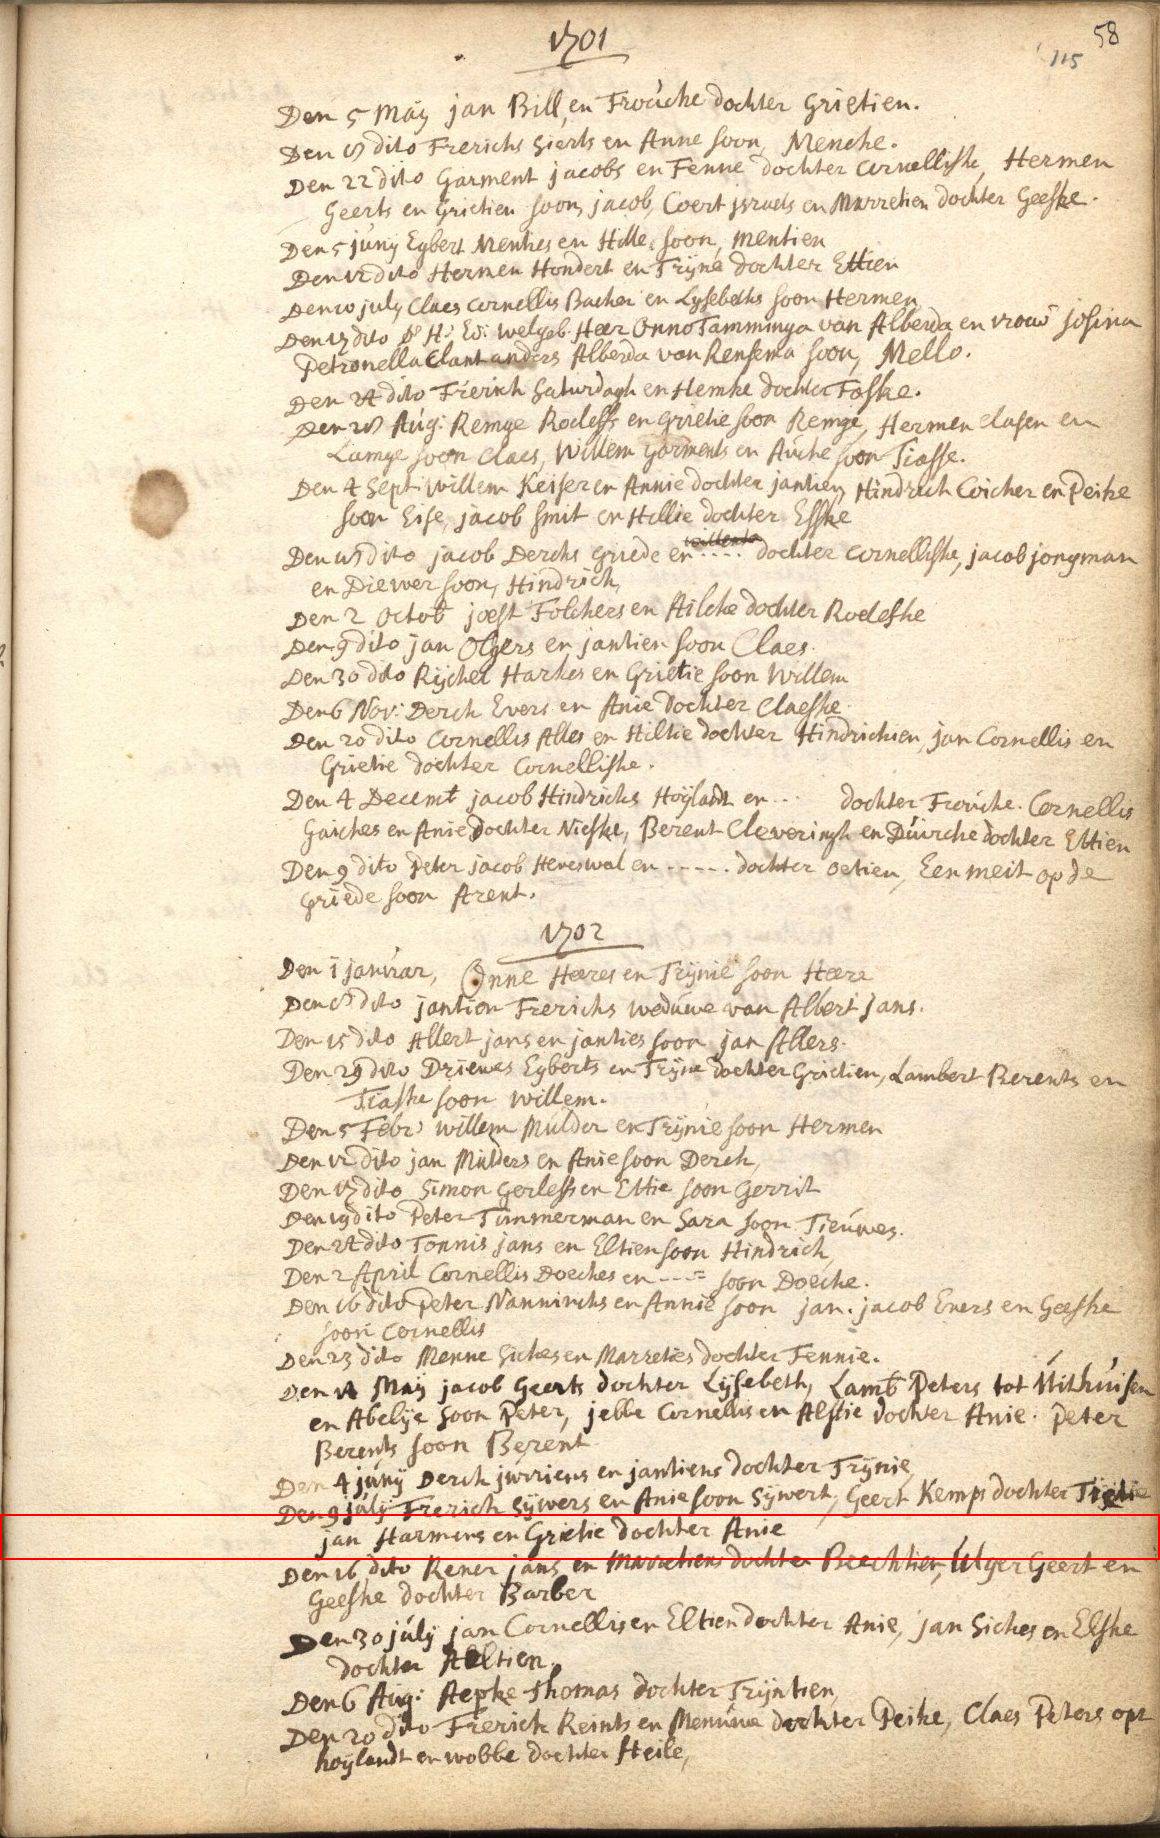 1701
58
115
Den 5 Maÿ jan Bill, en Froúche dochter Grietien.
Den 17 dito Frerichs Sierts en Anne soon, Menche.
Den 22 dito Garment jacobs en Fenne dochter Cornelliske, Hermen
Geerts en Grietien soon, jacob, Coert jsraels en Marretien dochter Geeske.
Den 5 júnÿ Egbert Menties en Hille, soon, mentien
Den 12 dito Hermen Hondert en Trÿne dochter Ettien
Den 10 julÿ Claes Cornellis Backer en Lysebeths soon Hermen
Den 17 dito D' H: Ed: Welgeb. Heer Onno Tamminga van Alberda en vrouw josina
Petronella Clant anders Alberda van Rensema soon, Mello.
Den 24 dito Frerich Saturdagh en Hemke dochter Foske.
Den 28 Aúg: Remge Roeleffs en Grietie soon Remge, Hermen Clasen en
Lamge soon Claes, Willem Garments en Aúche soon Tiasse.
Den 4 Sept: Willem Keiser en Annie dochter jantien, Hindrich Coicher en Peike
soon Eise, jacob smit en Hillie dochter Esske
Den 18 dito jacob Derchs Griede en .... dochter Cornelliske, jacob jongman
en Diewer soon, Hindrich,
Den 2 Octob joest Folchers en Ailche dochter Roeleske
Den 9 dito jan Olgers en jantien soon Claes.
Den 30 dito Rÿchel Harkes en Grietie soon Willem
Den 6 Nov: Derch Evers en Anie dochter Claeske
Den 20 dito Cornellis Alles en Hiltie dochter Hindrichien, jan Cornellis en
Grietie dochter Cornelliske.
Den 4 Decemb jacob Hindrichs Hoÿlandt en ... dochter Froúche. Cornellis
Gaiches en Anie dochter Nieske, Berent Cleveringh en Dúirche dochter Ettien
Den 9 dito Peter jacob Hereswal en ..... dochter Oetien, Een meit op de
Griede soon Arent.
1702
Den 1 janúar, Onne Heeres en Trÿnie soon Heere
Den 8 dito jantien Frerichs wedúwe van Albert Jans.
Den 15 dito Allert jans en janties soon jan Allers.
Den 29 dito Driewes Egberts en Trÿne dochter Grietien, Lambert Berents en
Tiaske soon Willem.
Den 5 Febr Willem Múlder en Trÿnie soon Hermen
Den 12 dito jan Múlders en Anie soon Derch,
Den 17 dito Simon Gerleffs en Ettie soon Gerrit
Den 19 dito Peter Timmerman en Sara soon Tieúwes.
Den 24 dito Tonnis jans en Eltien soon Hindrich,
Den 2 April Cornellis Doeches en ---- soon Doeche.
Den 16 dito Peter Nannincks en Annie soon jan. jacob Evers en Geeske
soon Cornellis
Den 23 dito Menne Siches en Marreties dochter Fennie.
Den 14 Maÿ jacob Geerts dochter Lÿsebeth, Lamb Peters tot Uithúisen
en Abelÿe soon Peter, jebbe Cornellis en Alstie dochter Anie. Peter
Berents soon Berent
Den 4 júnÿ Derch jurriens en jantiens dochter Trÿnie,
Den 9 júlÿ Frerich Sÿwers en Anie soon Sÿwert, Geert Kemp dochter Tietie
jan Harmens en Grietie dochter Anie
Den 16 dito Rener jans en Marretiens dochter Beechtien, Ulger Geert en
Geeske dochter Barber
Den 30 júlÿ jan Cornellis en Eltien dochter Anie, jan Siches en Elske
dochter Aeltien.
Den 6 Aúg: Aepke Thomas dochter Trÿntien,
Den 20 dito Frerich Reints en Menúwe dochter Peike, Claes Peters opt
hoÿlandt en wobbe dochter Heile,